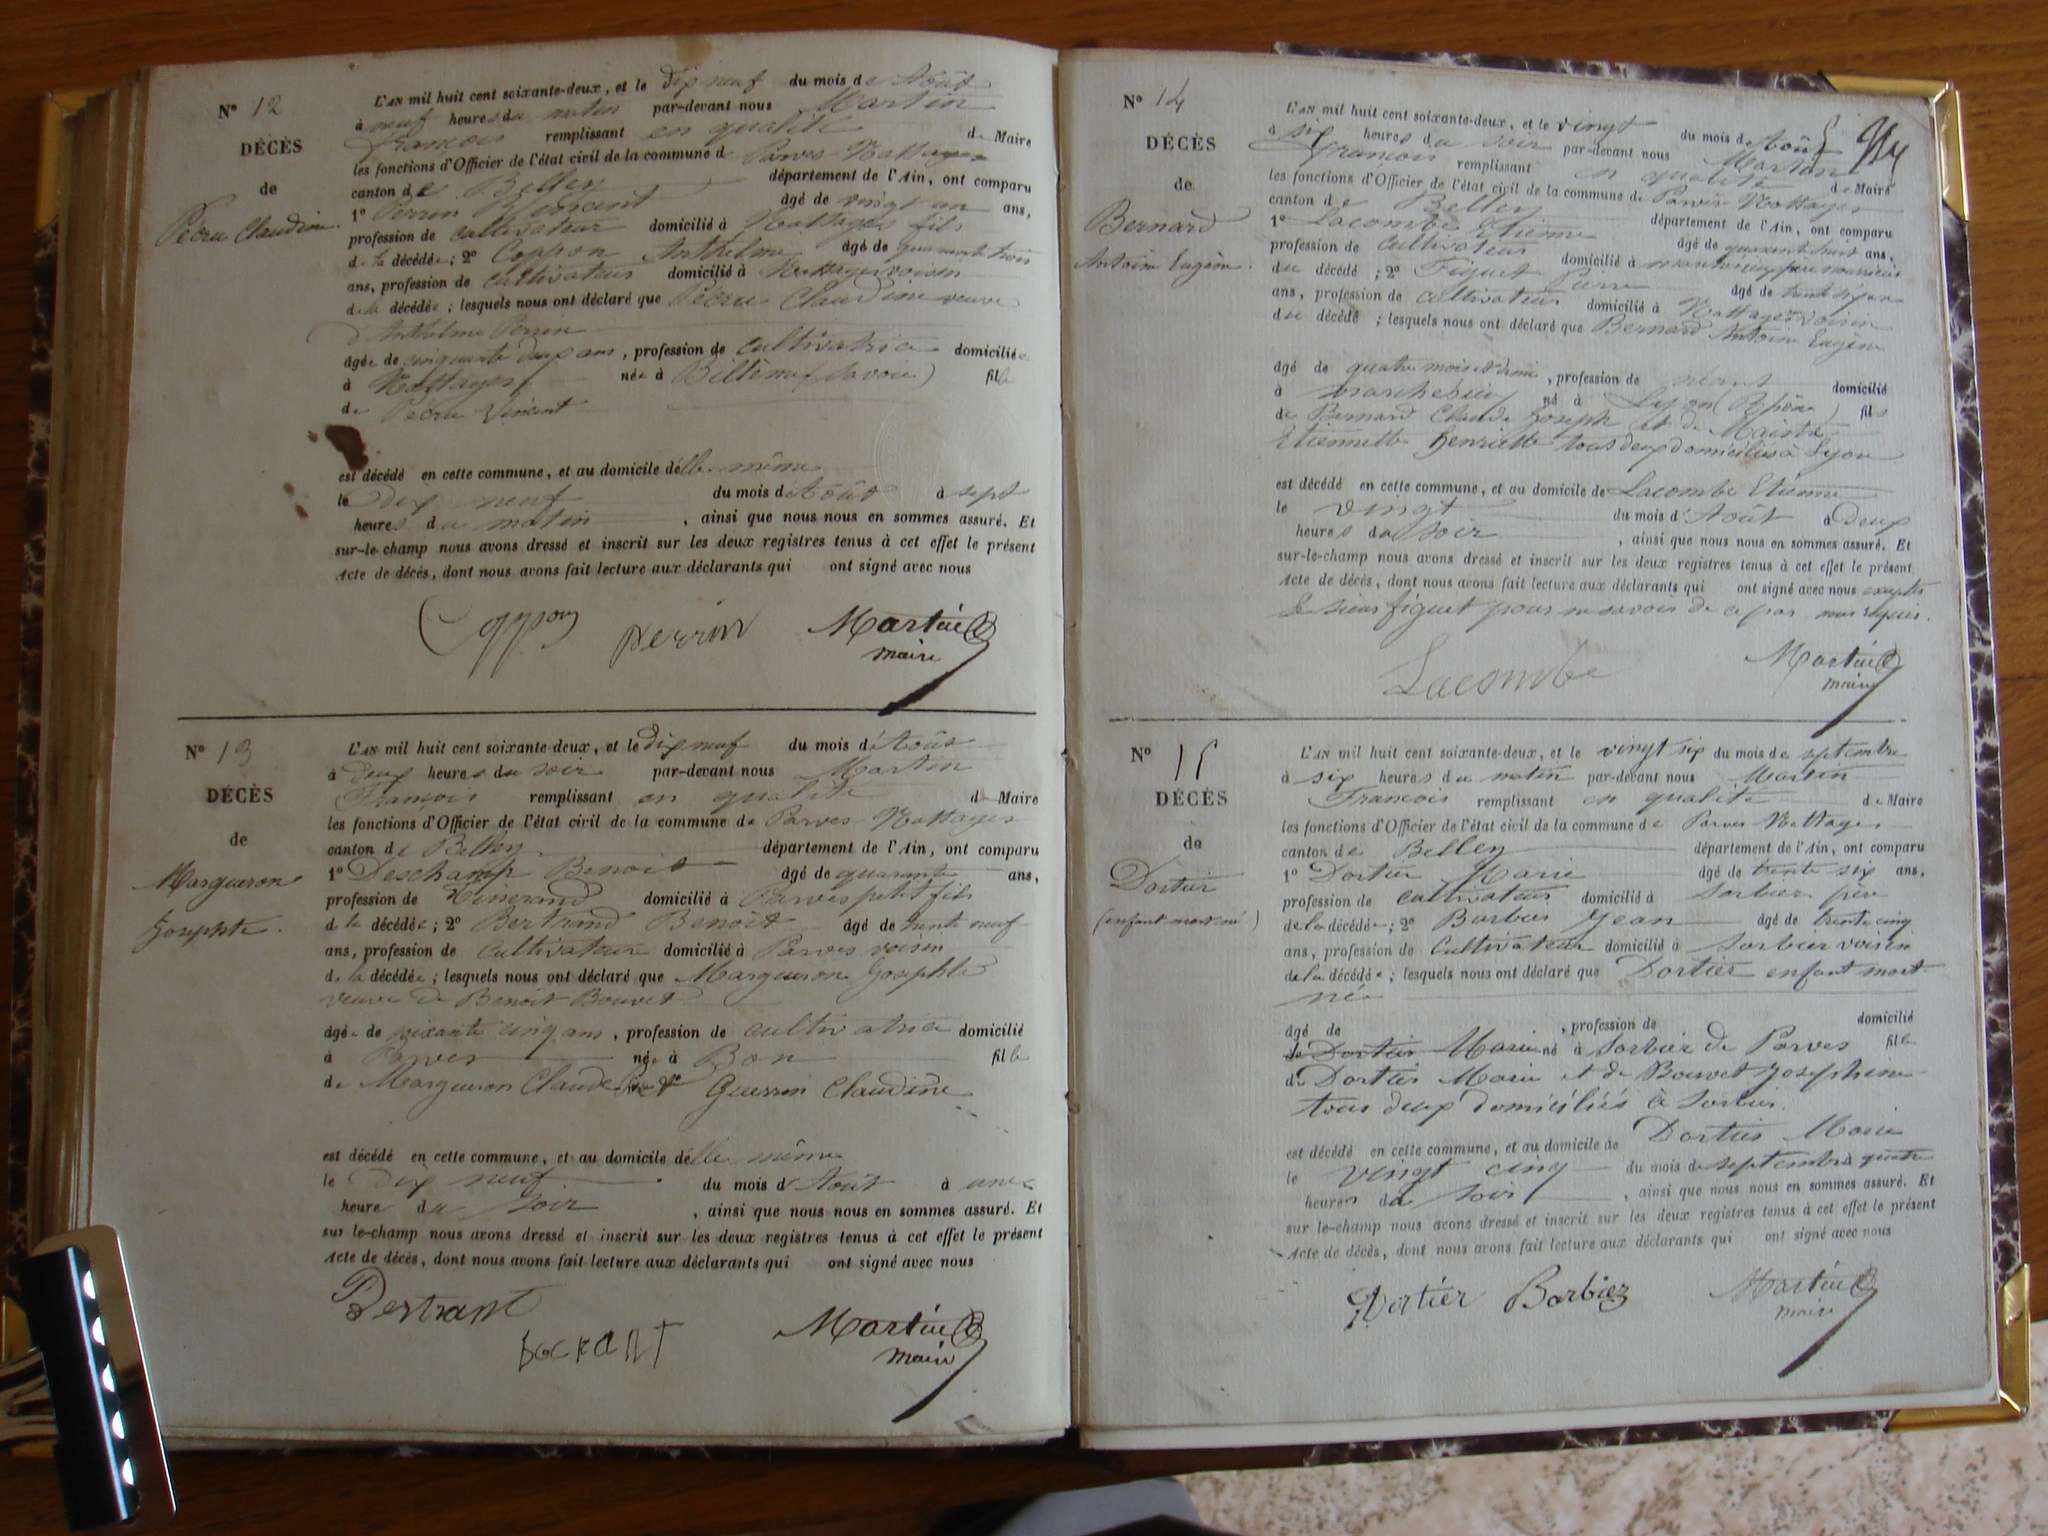 N° 12
DÉCÈS
de
Pécru Claudine.
L'AN mil huit cent soixante-deux, et le dix neuf du mois de Août
à neuf heures du matin par-devant nous Martin
François remplissant en qualité de Maire
les fonctions d'Officier de l'état civil de la commune de Parves-Nattages
canton de Belley département de l'Ain, ont comparu
1° Perrin âgé de vingt un ans,
profession de cultivateur domicilié à Nattages fils
de la décédée; 2° Coppon Anthelme âgé de quarante trois
ans, profession de cultivateur domicilié à Nattages voisin
de la décédée; lesquels nous ont déclaré que Pécru Claudine veuve
d'Anthelme Perrin
âgée de cinquante deux ans, profession de cultivatrice domiciliée
à Nattages née à (Savoie) fille
de Pécru Vincent
est décédé en cette commune, et au domicile d'elle même
le Dix neuf du mois d'Août à sept
heures du matin, ainsi que nous nous en sommes assuré. Et
sur-le-champ nous avons dressé et inscrit sur les deux registres tenus à cet effet le présent
Acte de décès, dont nous avons fait lecture aux déclarants qui ont signé avec nous
Coppon perrin Martin
maire
N° 13
DÉCÈS
de
Margueron
Josephte.
L'AN mil huit cent soixante-deux, et le dix neuf du mois d'Août
à deux heures du soir par-devant nous Martin
François remplissant en qualité de Maire
les fonctions d'Officier de l'état civil de la commune de Parves-Nattages
canton de Belley département de l'Ain, ont comparu
1° Deschamp Benoit âgé de quarante ans,
profession de domicilié à Parves petit fils
de la décédée; 2° Bertrand Benoit âgé de trente neuf
ans, profession de cultivateur domicilié à Parves voisin
de la décédée; lesquels nous ont déclaré que Margueron Josephte
veuve de Benoit Bouvet
âgée de soixante cinq ans, profession de cultivatrice domicilié
à Parves née à Bon fille
de Margueron Claude Guerrin Claudine
est décédé en cette commune, et au domicile d'elle même
le Dix neuf du mois d'Août à une
heure du soir, ainsi que nous nous en sommes assuré. Et
sur le-champ nous avons dressé et inscrit sur les deux registres tenus à cet effet le présent
Acte de décès, dont nous avons fait lecture aux déclarants qui ont signé avec nous
Martin
maire
N° 14
DÉCÈS
de
Bernard
Antoine Eugène.
L'AN mil huit cent soixante-deux, et le vingt du mois de Août
à six heures du soir par-devant nous Martin
François remplissant en qualité de Maire
les fonctions d'Officier de l'état civil de la commune de Parves-Nattages
canton de Belley département de l'Ain, ont comparu
1° Lacombe Etienne âgé de quarante huit ans,
profession de cultivateur domicilié à père nourricier
du décédé; 2° Figuet Pierre âgé de trente six
ans, profession de cultivateur domicilié à Nattages voisin
du décédé; lesquels nous ont déclaré que Bernard Antoine Eugène
âgé de quatre mois et demi, profession de néant domicilié
à né à Lyon (Rhône) fils
de Bernard Claude Joseph et de
Etiennette Henriette tous deux domiciliés à Lyon
est décédé en cette commune, et au domicile de Lacombe Etienne
le vingt du mois d'Août à deux
heures du soir, ainsi que nous nous en sommes assuré. Et
sur-le-champ nous avons dressé et inscrit sur les deux registres tenus à cet effet le présent
Acte de décès, dont nous avons fait lecture aux déclarants qui ont signé avec nous excepté
le sieur figuet pour ne savoir de ce par nous requis.
Lacombe Martin
maire
N° 15
DÉCÈS
de
Dortier
(enfant mort né)
L'AN mil huit cent soixante-deux, et le vingt six du mois de septembre
à six heures du matin par-devant nous Martin
François remplissant en qualité de Maire
les fonctions d'Officier de l'état civil de la commune de Parves Nattages
canton de Belley département de l'Ain, ont comparu
1° Dortier Marie âgé de trente six ans,
profession de cultivateur domicilié à Sorbier père
de la décédée; 2° Barbier Jean âgé de trente cinq
ans, profession de Cultivateur domicilié à Sorbier voisin
de la décédée; lesquels nous ont déclaré que Dortier enfant mort
née
âgé de , profession de domicilié
de Dortier Marie né à Sorbier de Parves fille
de Dortier Marie et de Bouvet Josephine
tous deux domiciliés à Sorbier.
est décédé en cette commune, et au domicile de Dortier Marie
le vingt cinq du mois de septembre à quatre
heures du soir, ainsi que nous nous en sommes assuré. Et
sur le-champ nous avons dressé et inscrit sur les deux registres tenus à cet effet le présent
Acte de décès, dont nous avons fait lecture aux déclarants qui ont signé avec nous
Dortier Barbier Martin
maire